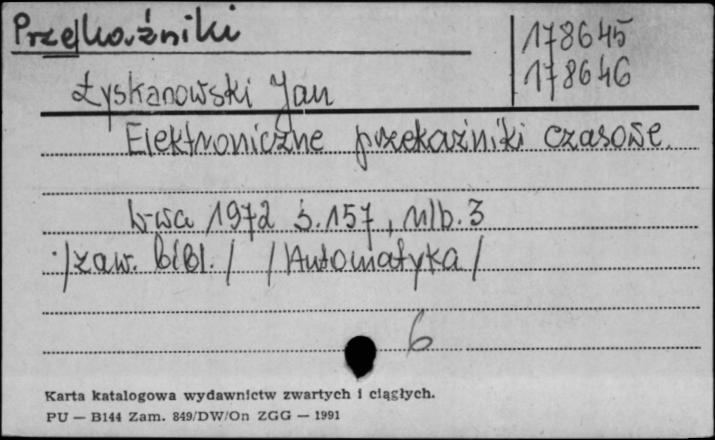 Przekaźniki
178645
178646
Łyskanowski Jan
Elektroniczne przekaźniki czasowe.
W-wa 1972 s. 157, nlb. 3
/zaw. bibl./ /Automatyka/
6
Karta katalogowa wydawnictw zwartych i ciągłych.
PU — B144 Zam. 849/DW/On ZGG — 1991